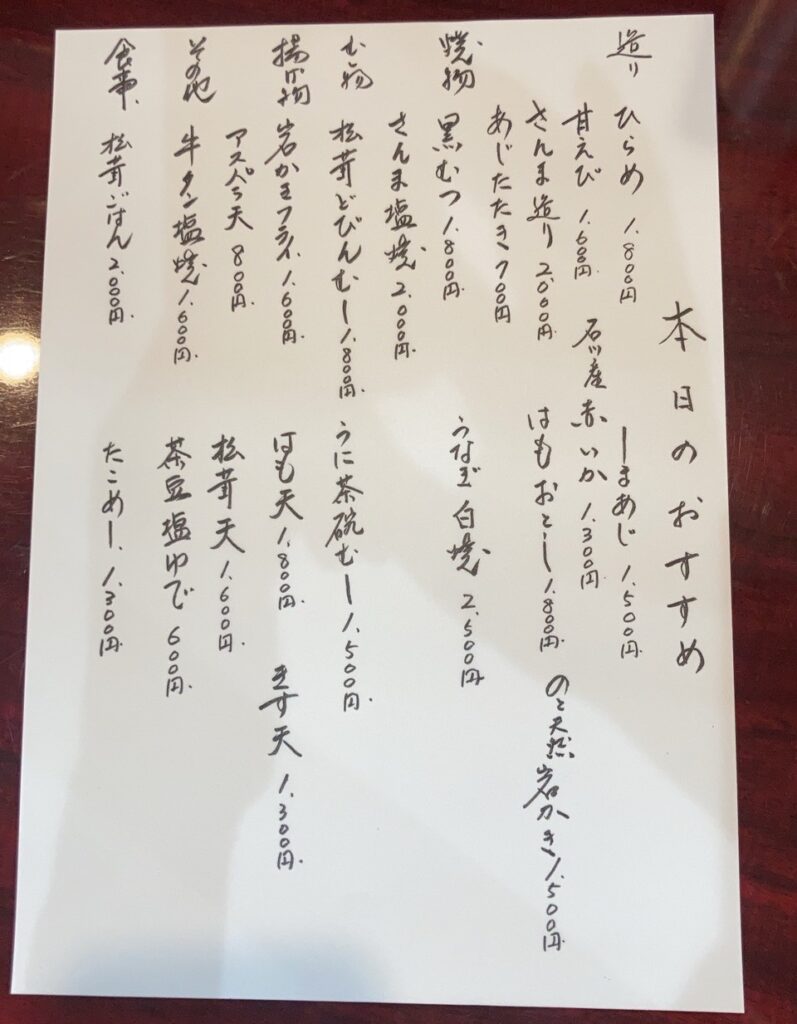 本日のおすすめ
造り
ひらめ 1.800円
しまあじ 1.500円
甘えび 1.600円
石川産 赤いか 1.300円
さんま造り 2.000円
はもおとし 1.800円
のと天然岩かき 1.500円
あじたたき 900円
焼物
黒むつ 1.800円
うなぎ白焼 2.500円
さんま塩焼 2.000円
むし物
松茸どびんむし 1.800円
うに茶碗むし 1.500円
揚げ物
岩かきフライ 1.600円
はも天 1.800円
きす天 1.300円
アスパラ天 800円
松茸天 1.600円
その他
牛タン塩焼 1.600円
茶豆塩ゆで 600円
食事
松茸ごはん 2.000円
たこめし 1.300円